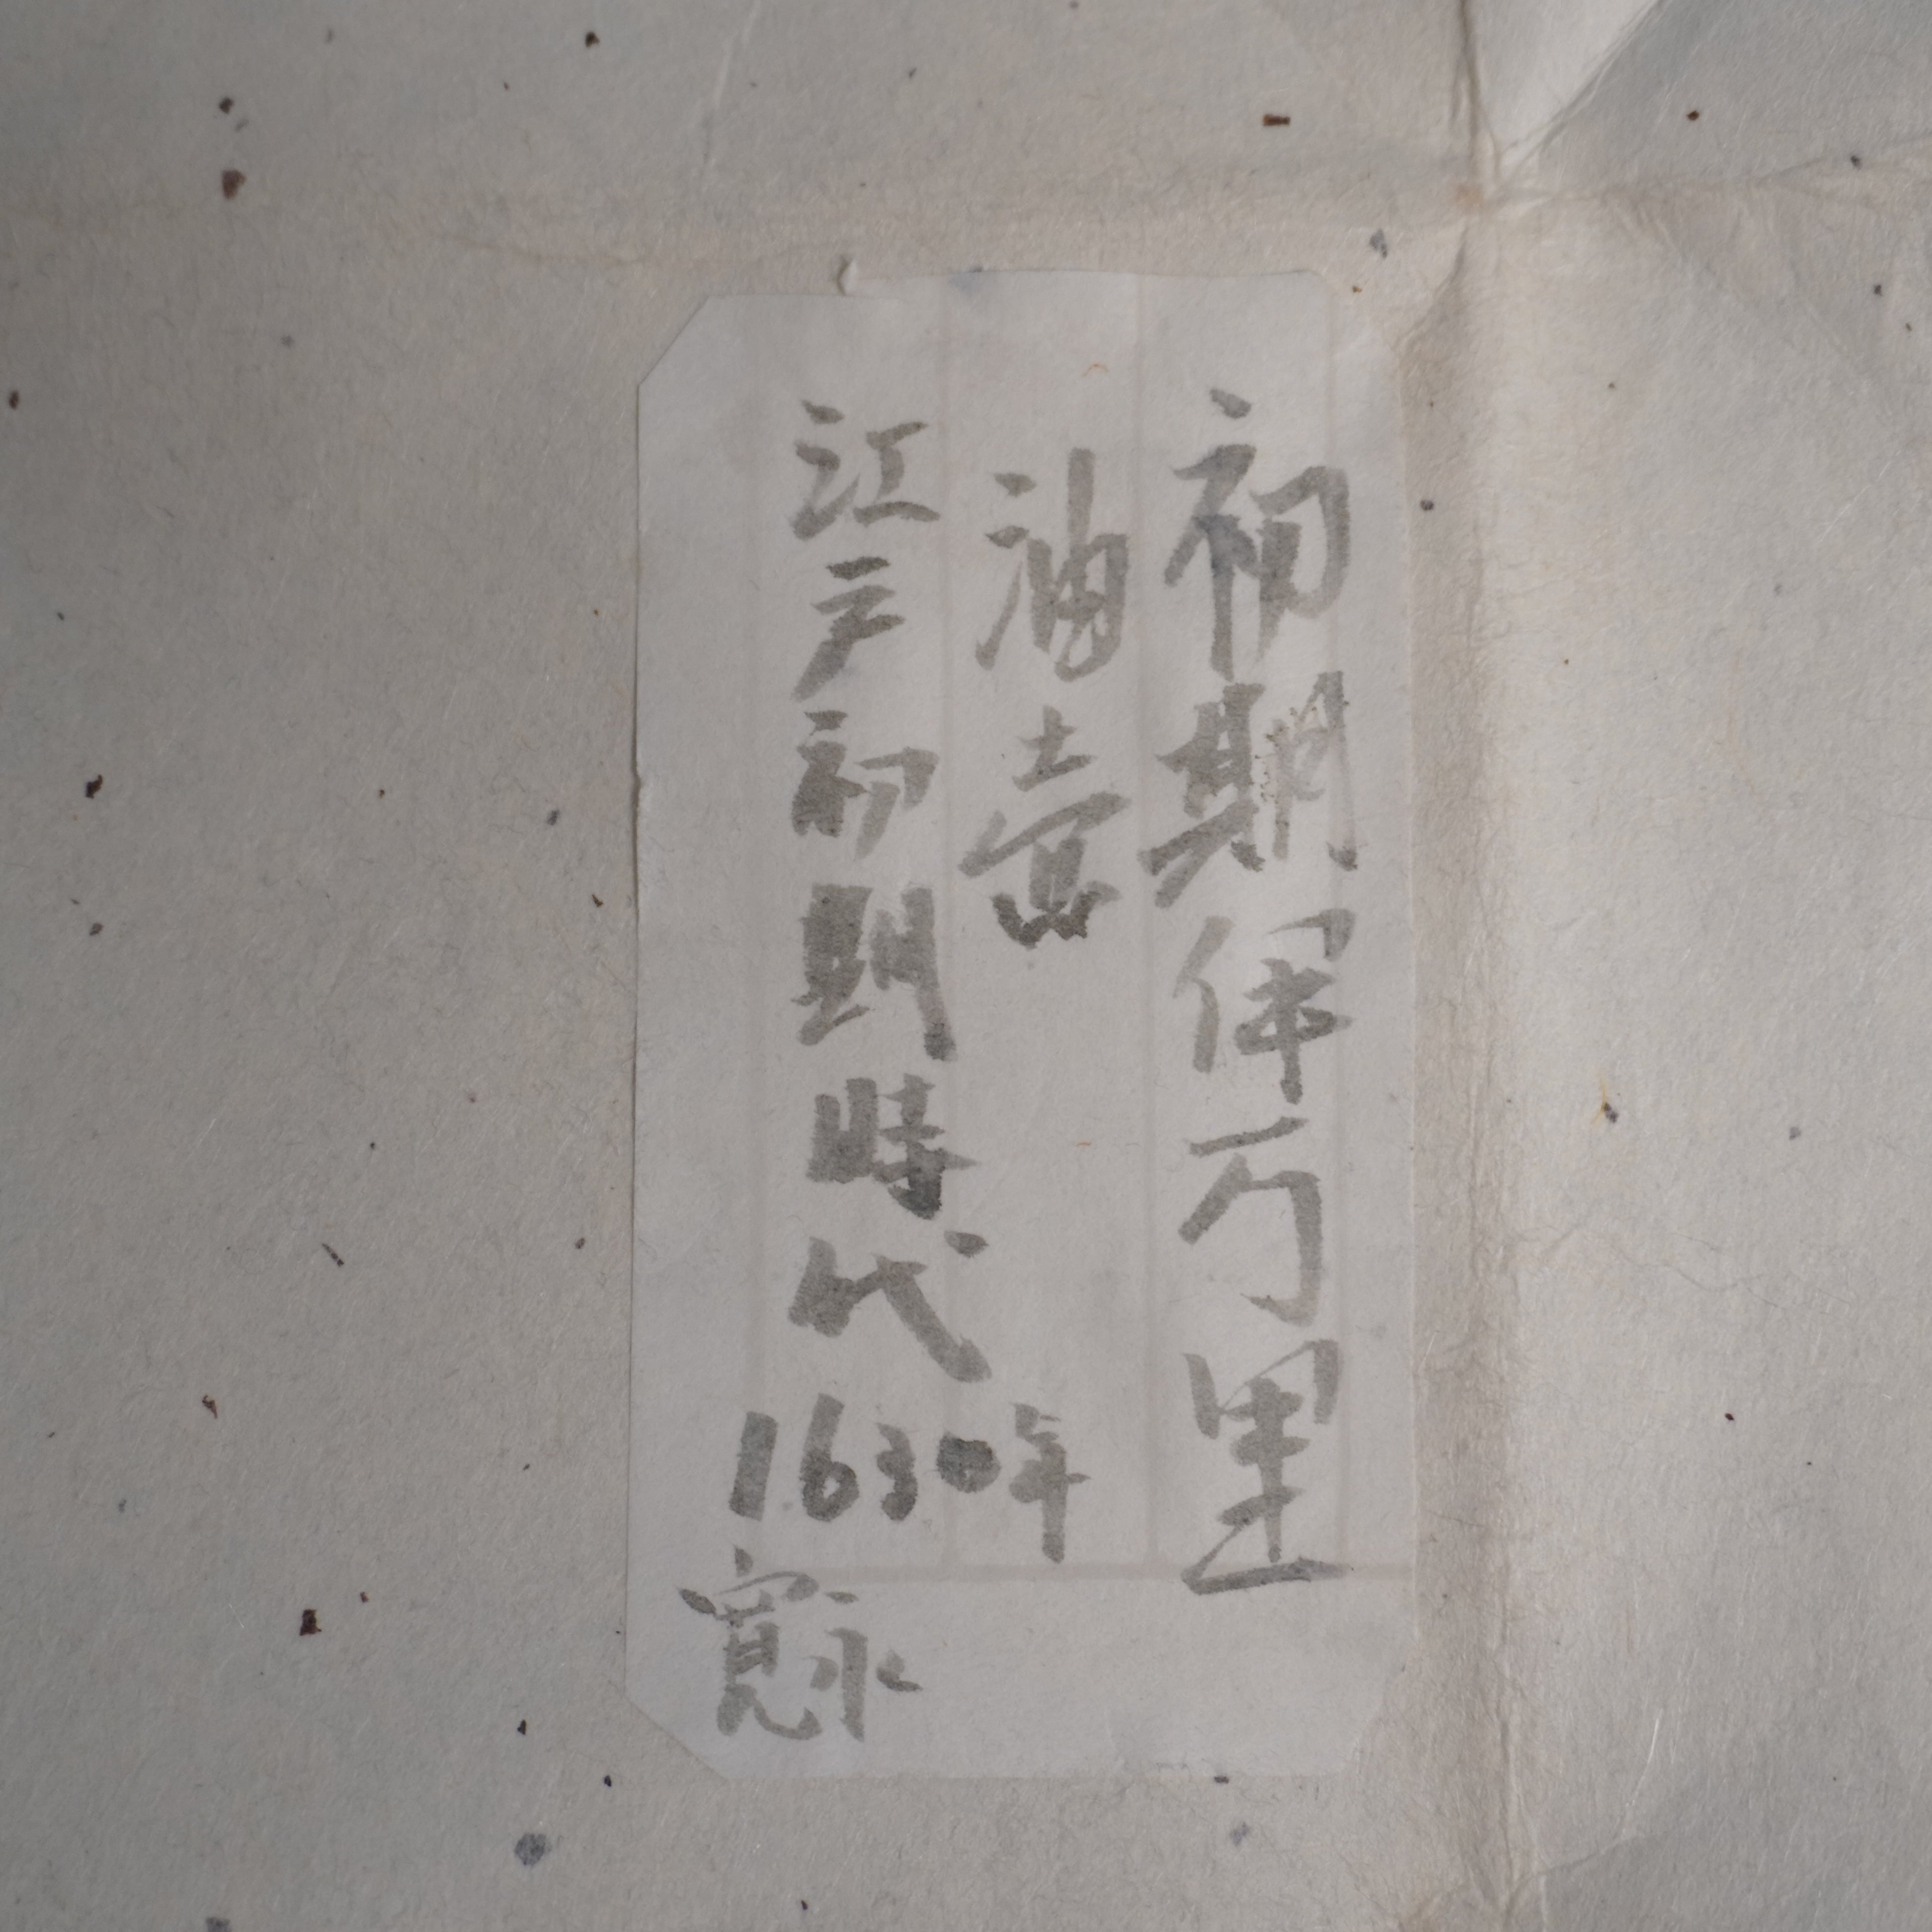 初期伊万里
油壷
江戸初期時代
1630年
寛永